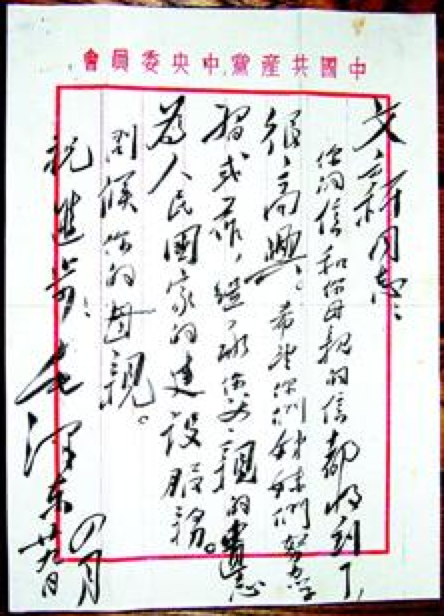 中國共産黨中央委員會
文新同志：
你的信和你母親的信都收到了，
很高興。希望你們姊妹們努力學
習或工作，繼承你父親的遺志，
為人民國家的建設服務。
問候你的母親。
祝進步！
毛澤東
四月
廿九日